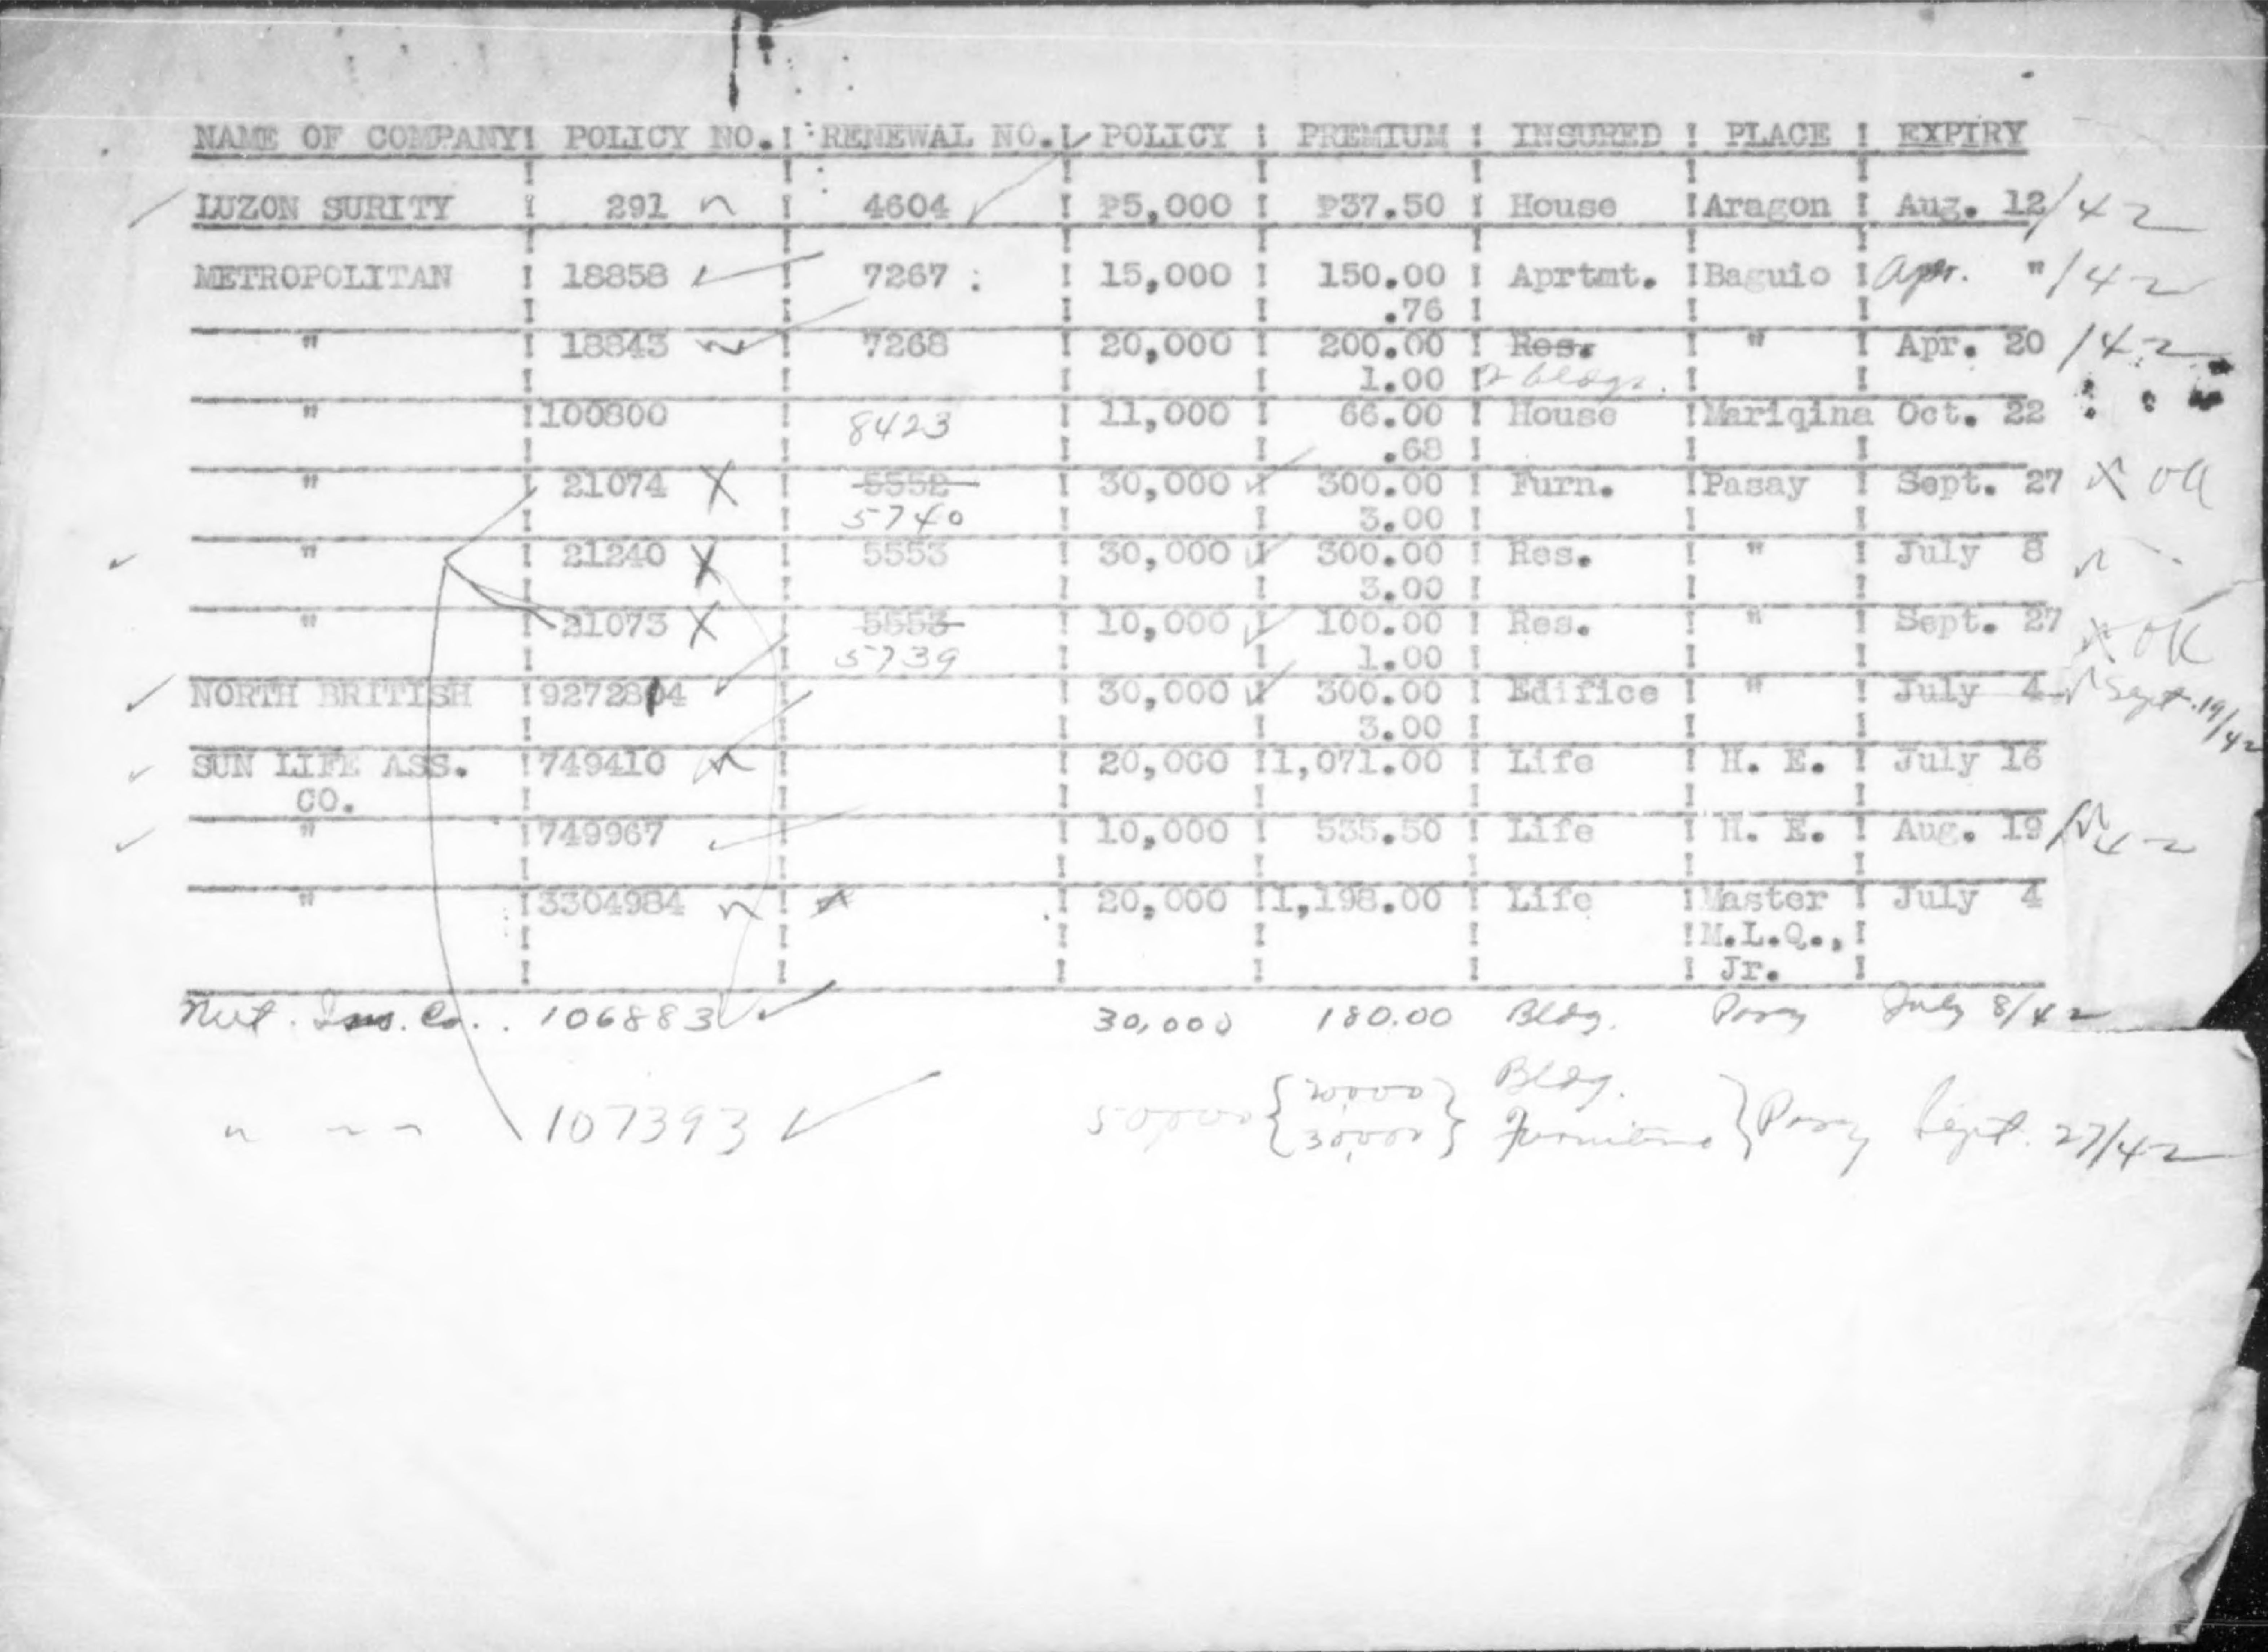 NAME OF COMPANY! POLICY NO.! RENEWAL NO.! POLICY ! PREMIUM ! INSURED ! PLACE ! EXPIRY
LUZON SURITY ! 291 ! 4604 ! ₱5,000 ! ₱37.50 ! House !Aragon ! Aug. 12/42
METROPOLITAN ! 18858 ! 7267 : ! 15,000 ! 150.00 ! Aprtmt. !Baguio ! Apr. "/42
.76
" ! 18843 ! 7268 ! 20,000 ! 200.00 ! Res. ! " ! Apr. 20/42
1.00 ! 2 bldgs.
" !100800 ! 8423 ! 11,000 ! 66.00 ! House !Mariqina Oct. 22
.68
" ! 21074 X ! 5552 ! 30,000 ! 300.00 ! Furn. !Pasay ! Sept. 27 X OK
5740 3.00
" ! 21240 X ! 5553 ! 30,000 ! 300.00 ! Res. ! " ! July 8
3.00
" ! 21073 X ! 5553 ! 10,000 ! 100.00 ! Res. ! " ! Sept. 27 X OK
5739 1.00
NORTH BRITISH !9272814 ! ! 30,000 ! 300.00 ! Edifice ! " ! July 4 Sept. 19/42
3.00
SUN LIFE ASS. !749410 ! ! 20,000 !1,071.00 ! Life ! H. E. ! July 16
CO.
" !749967 ! ! 10,000 ! 535.50 ! Life ! H. E. ! Aug. 19/42
" !3304984 ! ! 20,000 !1,198.00 ! Life !Master ! July 4
!M.L.Q., !
! Jr. !
Nat. Ins. Co. 106883 30,000 180.00 Bldg. Pasay July 8/42
" " " 107393 50,000 { 20,000 } Bldg.
{ 30,000 } Furniture } Pasay Sept. 27/42